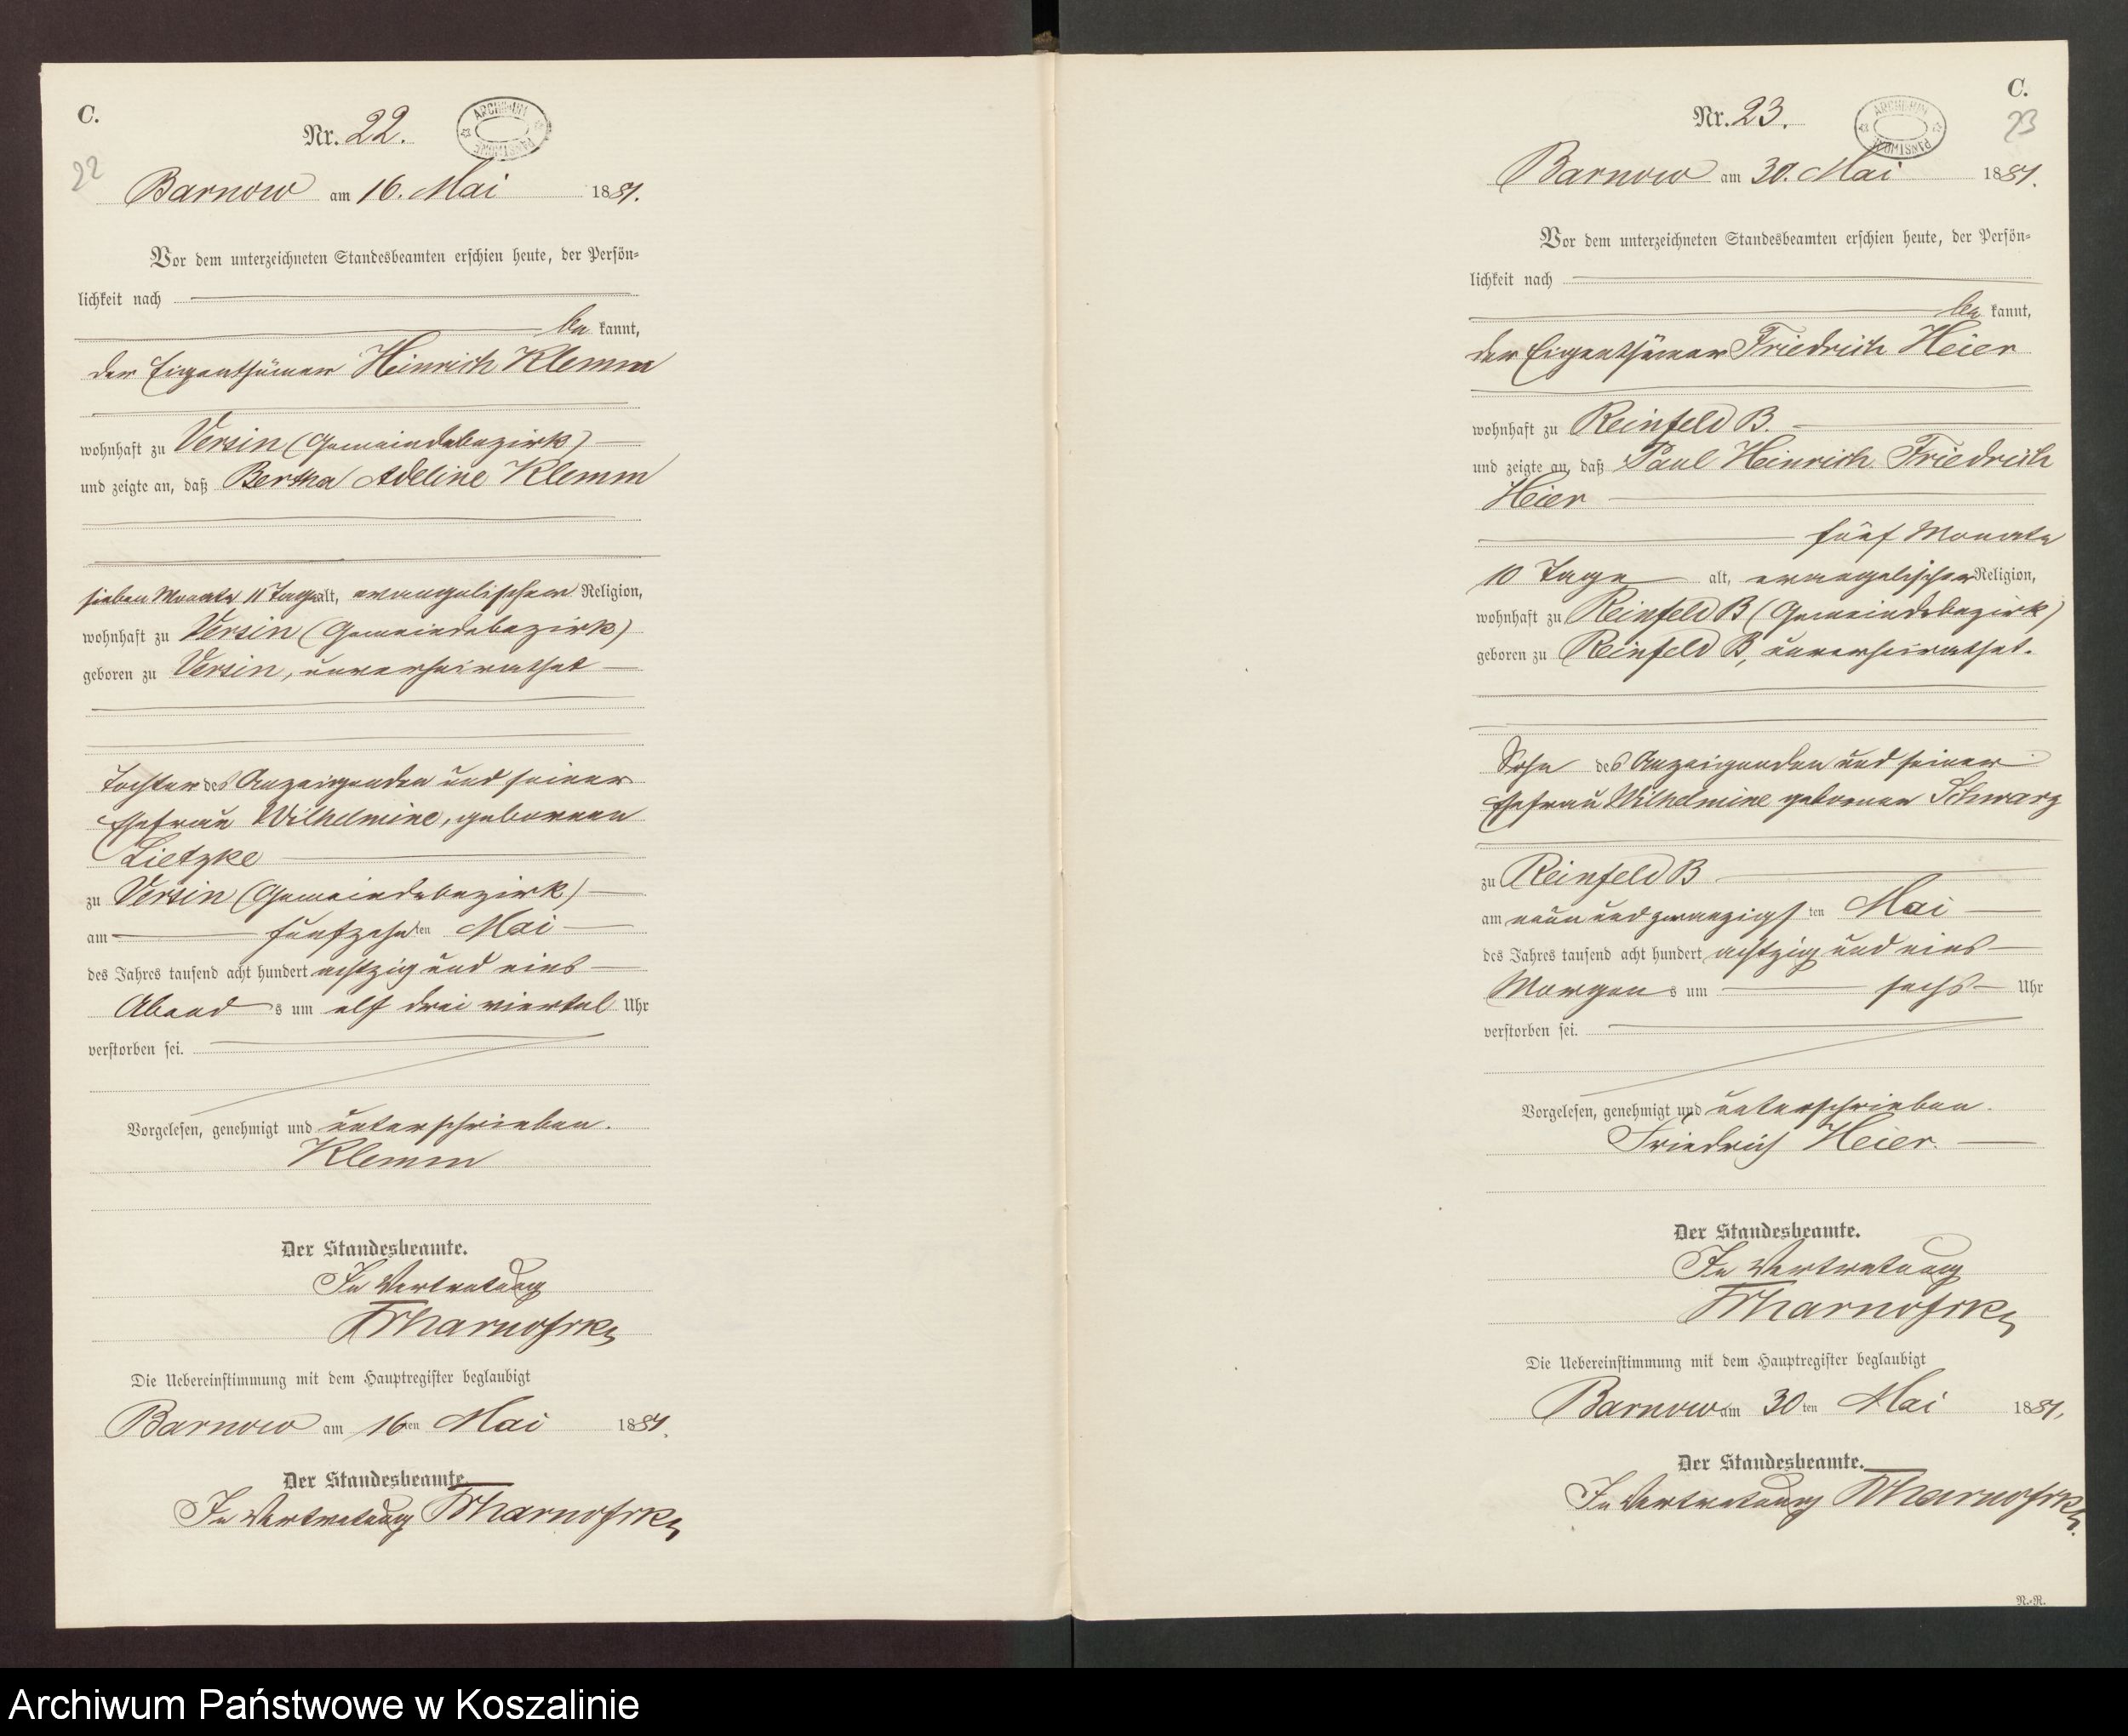 C.
Nr. 22.
ARCHIWUM PAŃSTWOWE
22
Barnow am 16. Mai 1881.
Vor dem unterzeichneten Standesbeamten erschien heute, der Persön-
lichkeit nach
be kannt,
der Eigenthümer Heinrich Klemm
wohnhaft zu Versin (Gemeindebezirk)
und zeigte an, daß Bertha Adeline Klemm
sieben Monate 11 Tage alt, evangelischer Religion,
wohnhaft zu Versin (Gemeindebezirk)
geboren zu Versin, unverheirathet
Tochter des Anzeigenden und seiner
Ehefrau Wilhelmine, geborenen
Lietzke
zu Versin (Gemeindebezirk)
am fünfzehn ten Mai
des Jahres tausend acht hundert achtzig und eins
Abend s um elf drei viertel Uhr
verstorben sei.
Vorgelesen, genehmigt und unterschrieben.
Klemm
Der Standesbeamte.
In Vertretung
Die Uebereinstimmung mit dem Hauptregister beglaubigt
Barnow am 16 ten Mai 1881.
Der Standesbeamte.
In Vertretung
C.
Nr. 23.
ARCHIWUM PAŃSTWOWE
23
Barnow am 30. Mai 1881.
Vor dem unterzeichneten Standesbeamten erschien heute, der Persön-
lichkeit nach
be kannt,
der Eigenthümer Friedrich Heier
wohnhaft zu Reinfeld B.
und zeigte an, daß Paul Heinrich Friedrich
Heier
fünf Monate
10 Tage alt, evangelischer Religion,
wohnhaft zu Reinfeld B (Gemeindebezirk)
geboren zu Reinfeld B, unverheirathet.
Sohn des Anzeigenden und seiner
Ehefrau Wilhelmine geborenen Schwarz
zu Reinfeld B
am neun und zwanzigs ten Mai
des Jahres tausend acht hundert achtzig und eins
Morgen s um sechs Uhr
verstorben sei.
Vorgelesen, genehmigt und unterschrieben.
Friedrich Heier.
Der Standesbeamte.
In Vertretung
Die Uebereinstimmung mit dem Hauptregister beglaubigt
Barnow am 30 ten Mai 1881.
Der Standesbeamte.
In Vertretung
N.-R.
Archiwum Państwowe w Koszalinie